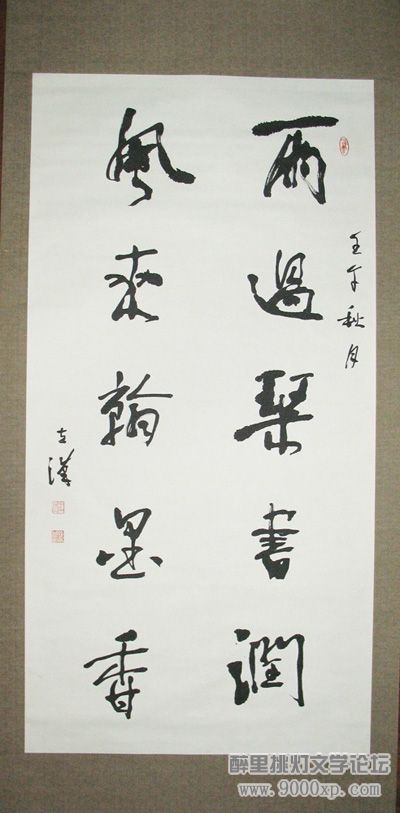 壬午秋月
雨過琴書潤
風來翰墨香
左漢
醉里挑灯文学论坛
www.9000xp.com